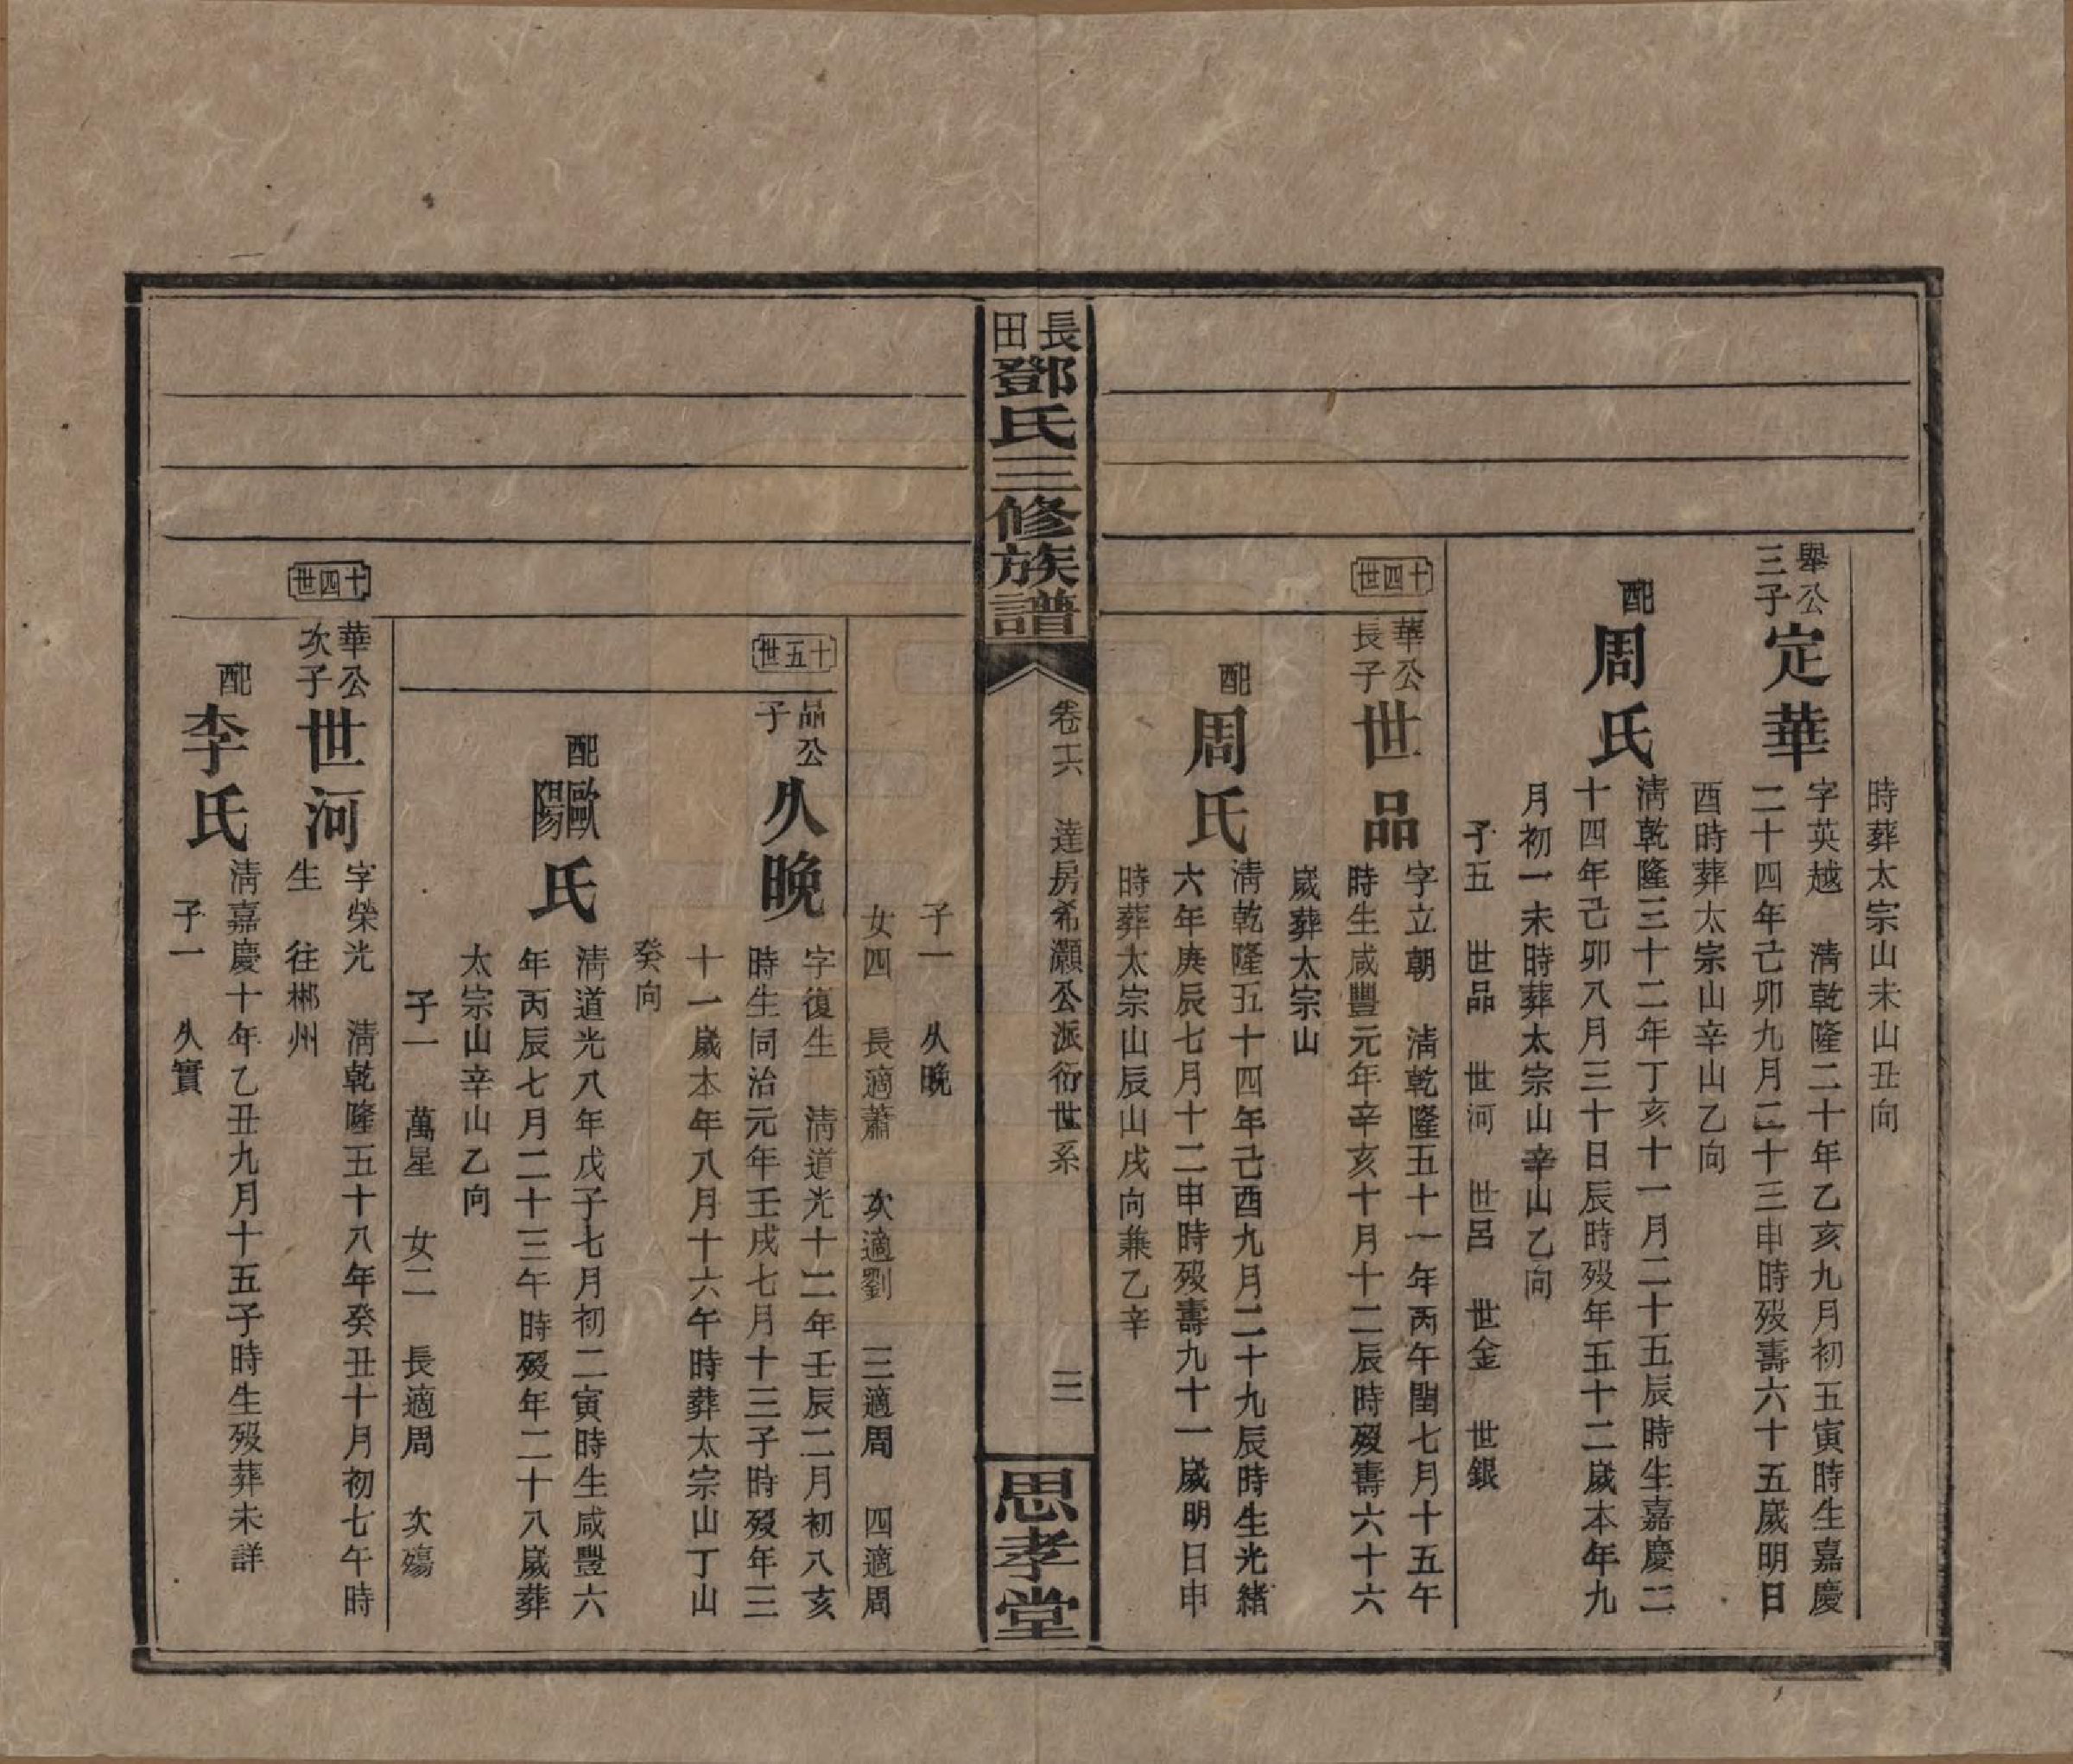 時葬太宗山未山丑向
舉公三子 定華 字英越 淸乾隆二十年乙亥九月初五寅時生嘉慶
二十四年己卯九月二十三申時歿壽六十五歲明日
酉時葬太宗山辛山乙向
配 周氏 淸乾隆三十二年丁亥十一月二十五辰時生嘉慶二
十四年己卯八月三十日辰時歿年五十二歲本年九
月初一未時葬太宗山辛山乙向
子五 世品 世河 世呂 世金 世銀
十四世
華公長子 世品 字立朝 淸乾隆五十一年丙午閏七月十五午
時生咸豐元年辛亥十月十二辰時歿壽六十六
歲葬太宗山
配 周氏 淸乾隆五十四年己酉九月二十九辰時生光緒
六年庚辰七月十二申時歿壽九十一歲明日申
時葬太宗山辰山戌向兼乙辛
長田鄧氏三修族譜
卷十六 達房希灝公派衍世系
三
思孝堂
子一 久晚
女四 長適蕭 次適劉 三適周 四適周
十五世
品公子 久晚 字復生 淸道光十二年壬辰二月初八亥
時生同治元年壬戌七月十三子時歿年三
十一歲本年八月十六午時葬太宗山丁山
癸向
配 歐陽氏 淸道光八年戊子七月初二寅時生咸豐六
年丙辰七月二十三午時歿年二十八歲葬
太宗山辛山乙向
子一 萬星 女二 長適周 次殤
十四世
華公次子 世河 字榮光 淸乾隆五十八年癸丑十月初七午時
生 往郴州
配 李氏 淸嘉慶十年乙丑九月十五子時生歿葬未詳
子一 久實